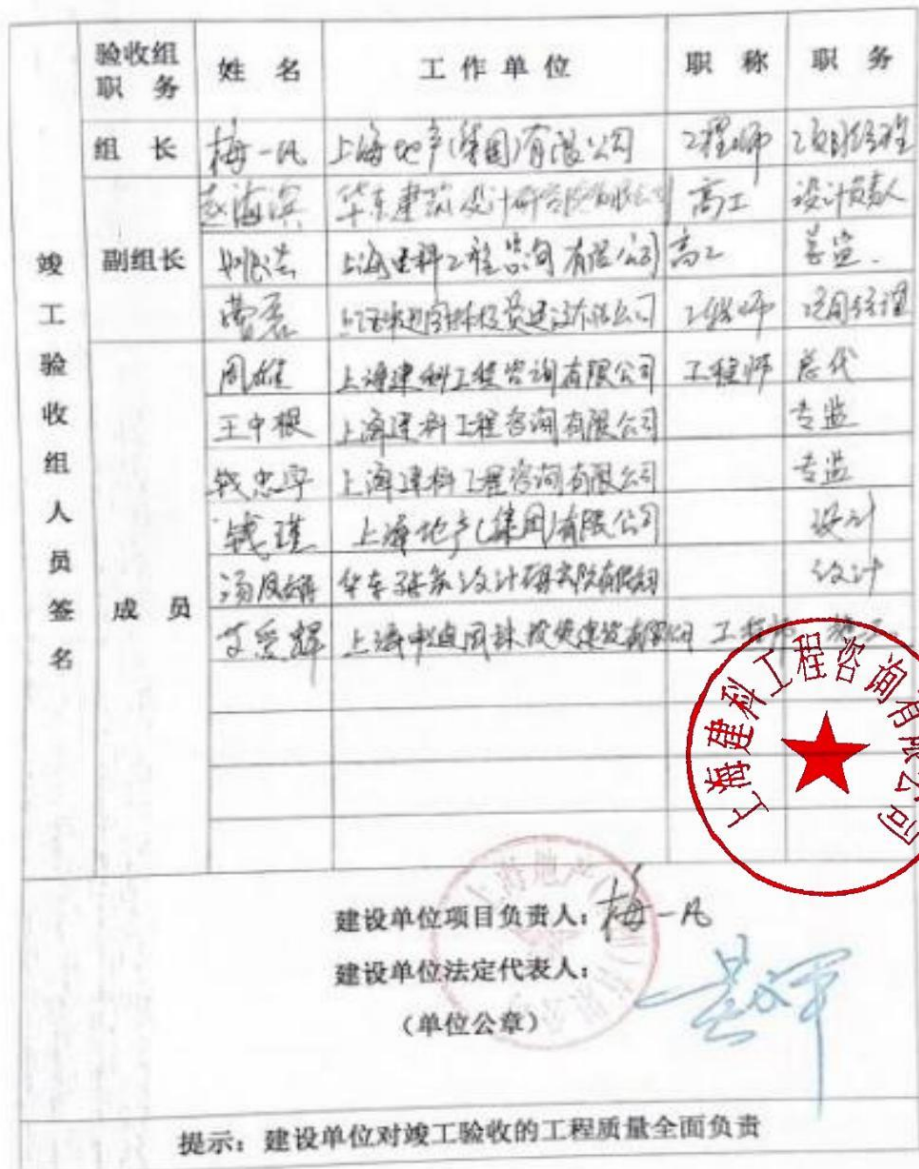 验收组职务 姓名 工作单位 职称 职务
竣工验收组人员签名
组长 梅一凡 上海地产(集团)有限公司 工程师 项目经理
副组长
赵海滨 华东建筑设计研究院有限公司 高工 设计负责人
上海建科工程咨询有限公司 高工 总监
工程师 项目经理
成员
周雄 上海建科工程咨询有限公司 工程师 总代
王中根 上海建科工程咨询有限公司 专监
钱忠宇 上海建科工程咨询有限公司 专监
钱瑾 上海地产(集团)有限公司 设计
华东建筑设计研究院有限公司 设计
上海申迪园林投资建设有限公司 工程师
上海建科工程咨询有限公司
建设单位项目负责人: 梅一凡
建设单位法定代表人:
(单位公章)
提示: 建设单位对竣工验收的工程质量全面负责